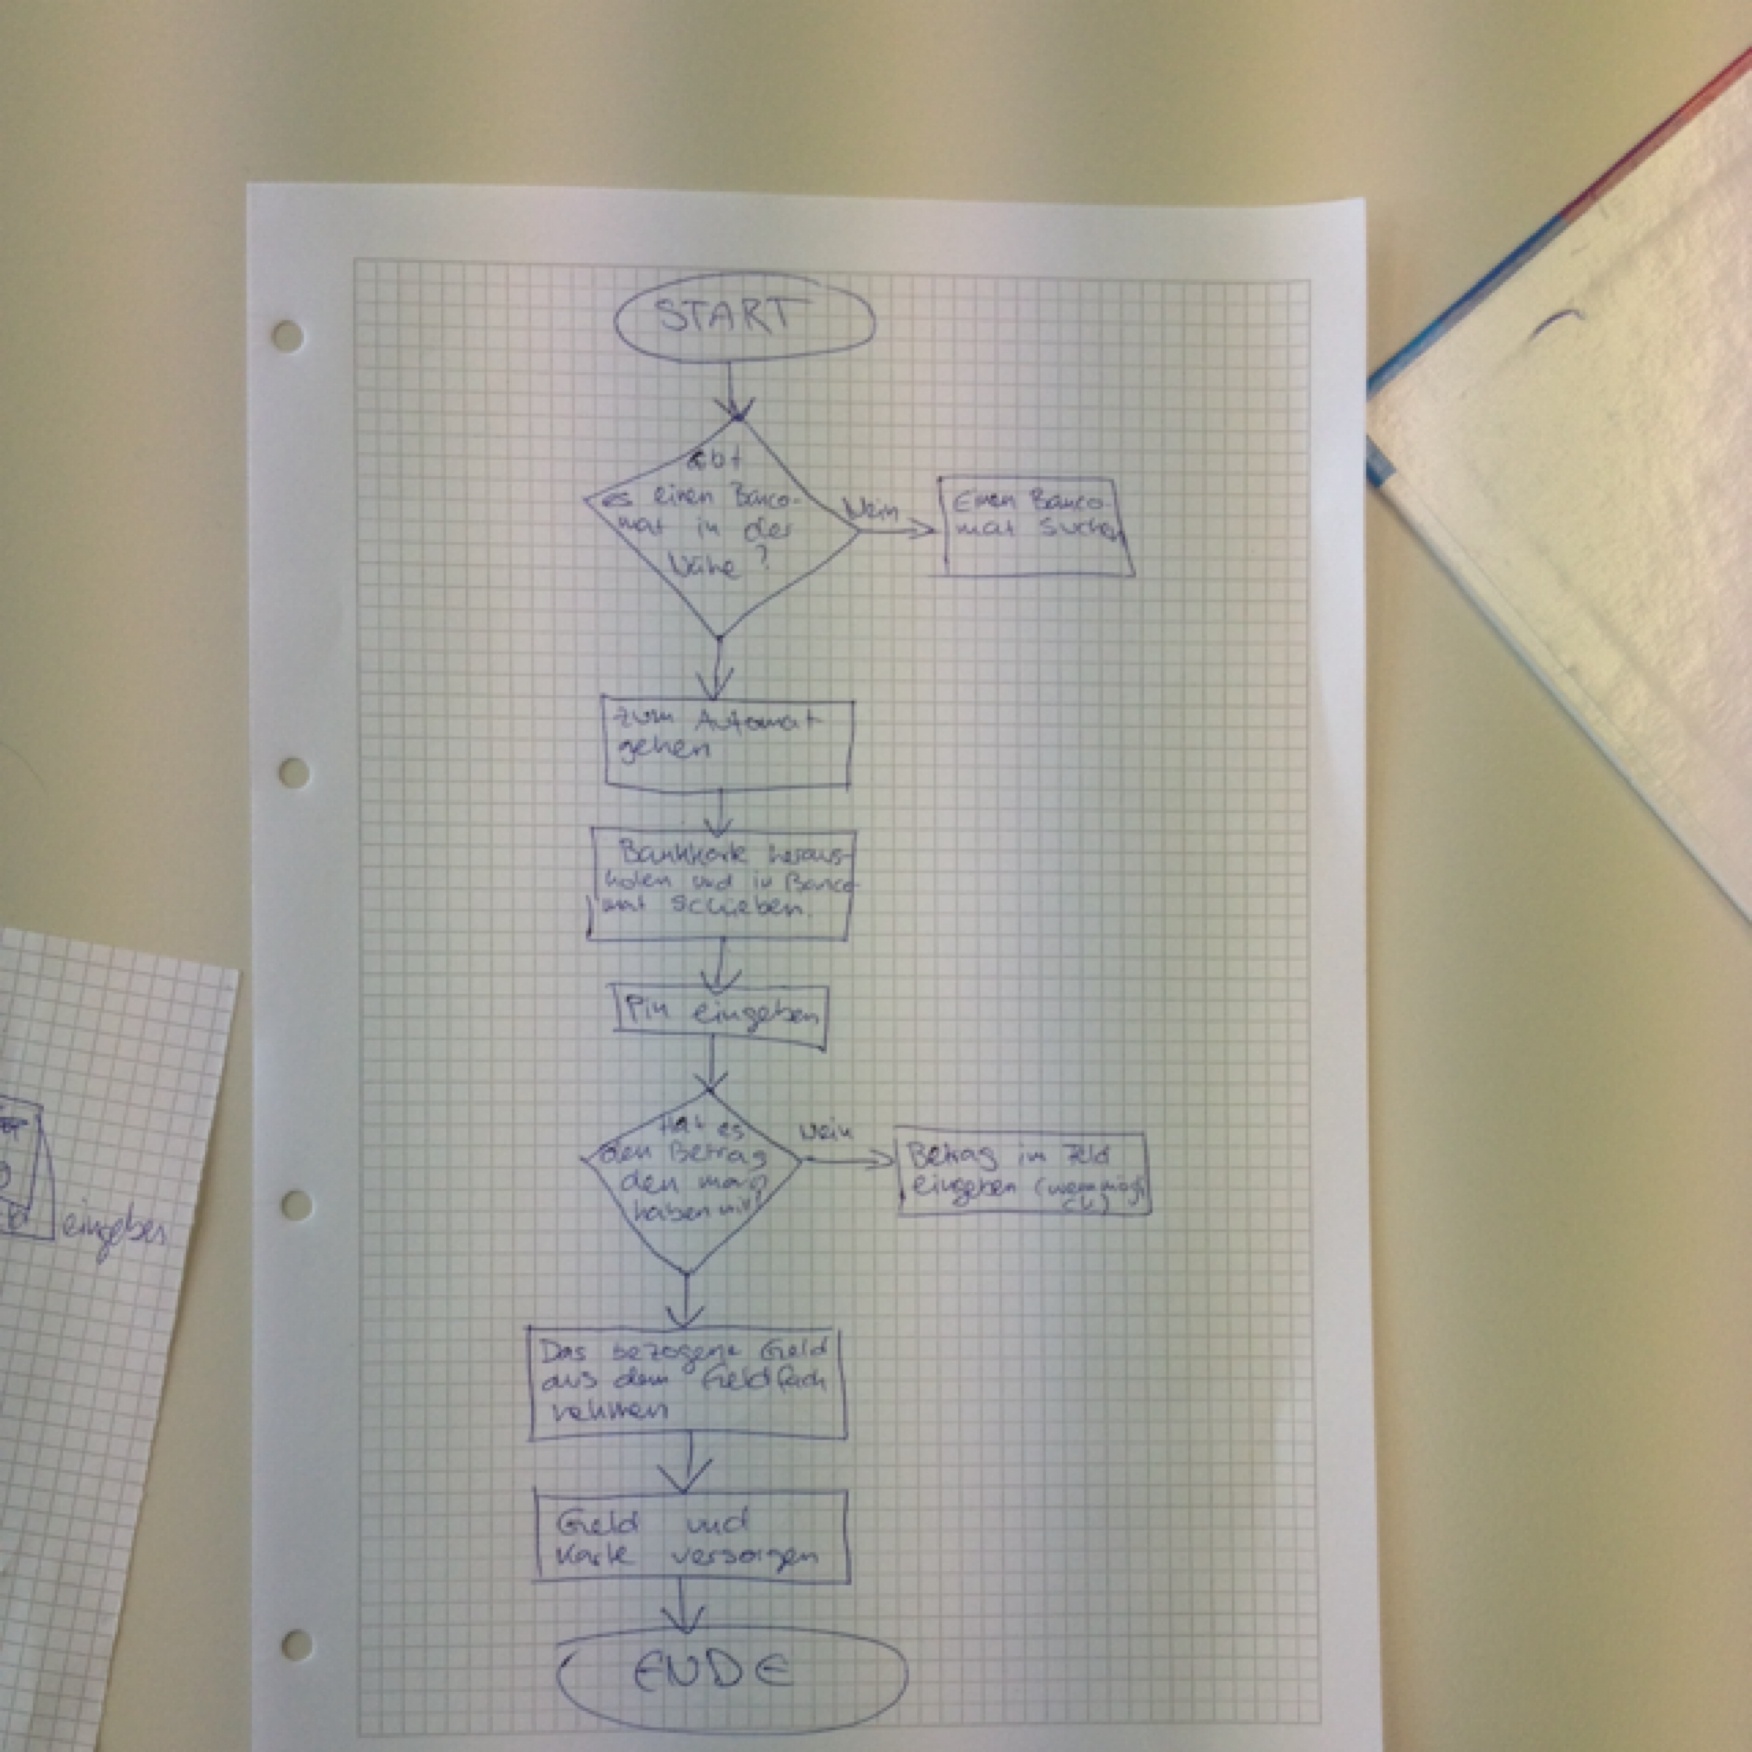 START
Gibt
es einen Banco-
mat in der
Nähe?
Nein
Einen Banco-
mat suchen
zum Automat
gehen
Bankkarte heraus-
holen und in Banco-
mat schieben.
Pin eingeben
Hat es
den Betrag
den man
haben will?
Nein
Betrag in Feld
eingeben (wenn mögli
ch)
Das bezogene Geld
aus dem Geldfach
nehmen
Geld und
Karte versorgen
ENDE
eingeben